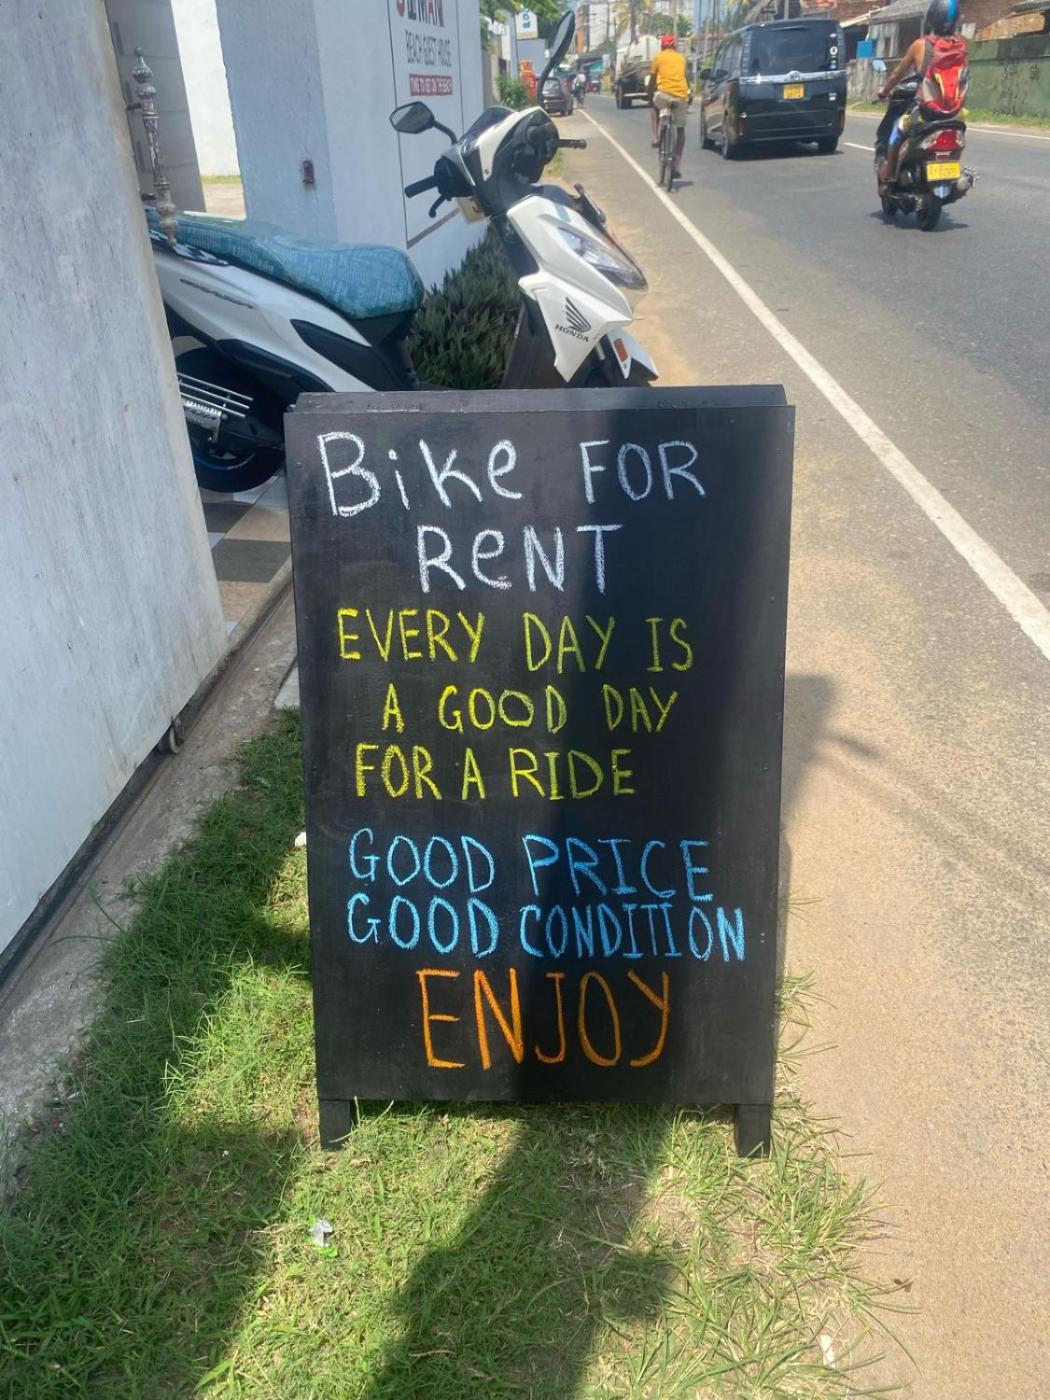 BEACH GUEST HOUSE
HONDA
Bike FOR
ReNT
EVERY DAY IS
A GOOD DAY
FOR A RIDE
GOOD PRICE
GOOD CONDITION
ENJOY